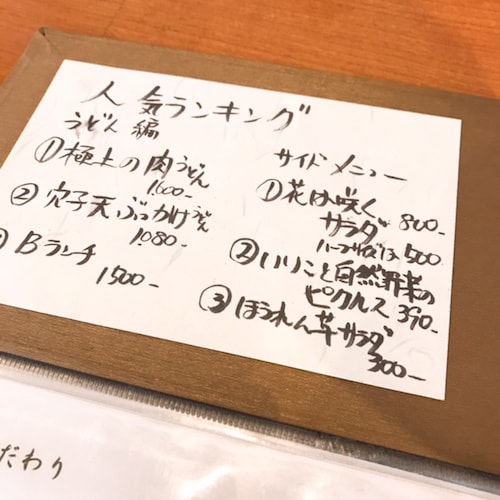 人気ランキング
うどん編
①極上の肉うどん
1600-
②穴子天ぶっかけうどん
1080-
Bランチ
1500-
サイドメニュー
①花は咲く
サラダ 800-
ハーフサイズは500
②いりこと自然野菜の
ピクルス 390-
③ほうれん草サラダ
300-
だわり